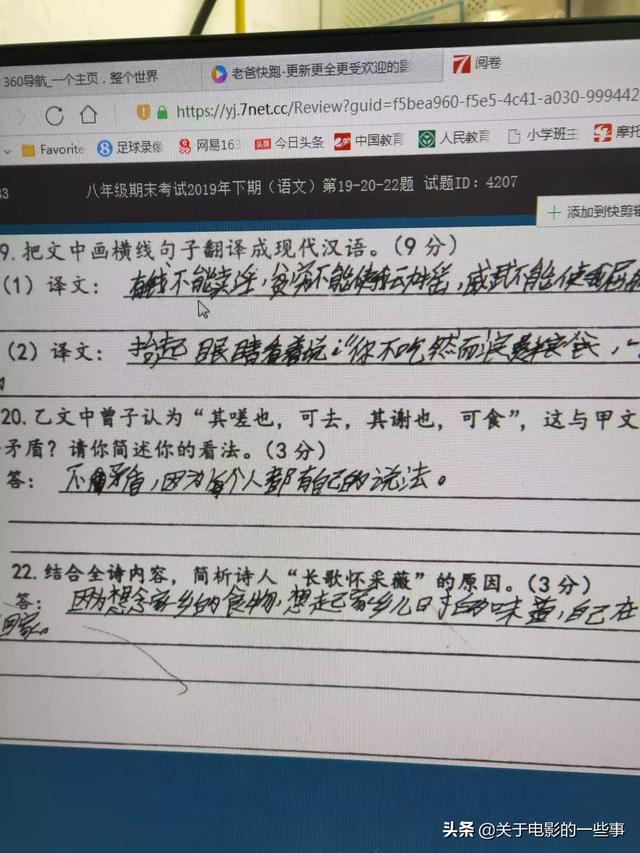 360导航_一个主页，整个世界
老爸快跑-更新更全更受欢迎的影
阅卷
https://yj.7net.cc/Review?guid=f5bea960-f5e5-4c41-a030-999442
Favorite 足球录像 网易163 头条 今日头条 中国教育 人民教育 小学班主 摩托
八年级期末考试2019年下期（语文）第19-20-22题 试题ID：4207
添加到快剪辑
9.把文中画横线句子翻译成现代汉语。（9分）
（1）译文：有钱不能卖淫，贫穷不能使我动摇，威武不能使我屈
（2）译文：抬起眼睛看着说："你不吃然而
20.乙文中曾子认为“其嗟也，可去，其谢也，可食”，这与甲文
矛盾？请你简述你的看法。（3分）
答：不矛盾，因为每个人都有自己的说法。
22.结合全诗内容，简析诗人“长歌怀采薇”的原因。（3分）
答：因为想念家乡的食物，想起家乡儿时的味道，自己在
回家。
头条 @关于电影的一些事